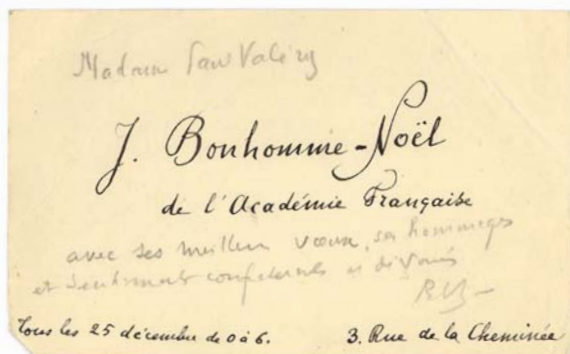 Madame Paul Valéry
J. Bonhomme-Noël
de l'Académie Française
avec ses meilleurs vœux, ses hommages
et sentiments et dévoués
Tous les 25 décembre de 0 à 6.
3. Rue de la Cheminée